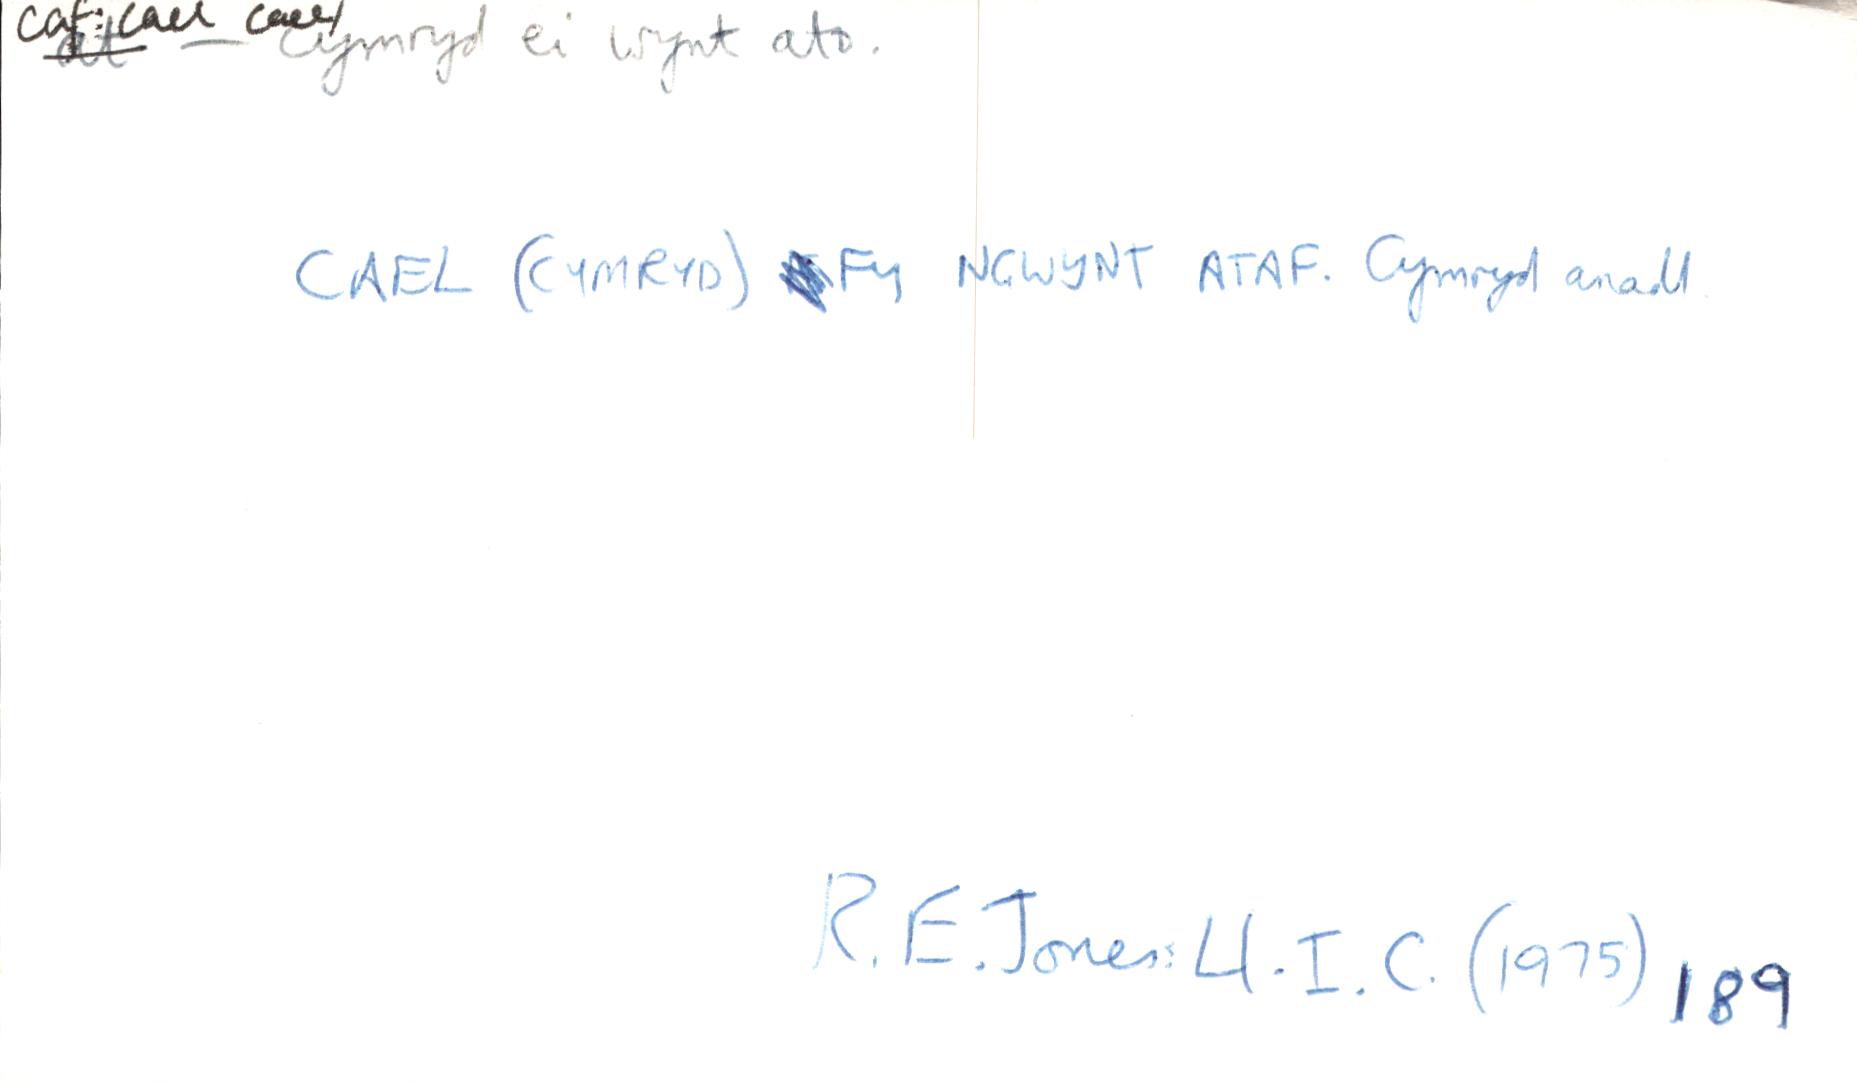 caf: cael cael
at — Cymryd ei wynt ato.
CAEL (CYMRYD) FY NGWYNT ATAF. Cymryd anadl
R.E. Jones: Ll.I.C. (1975) 189